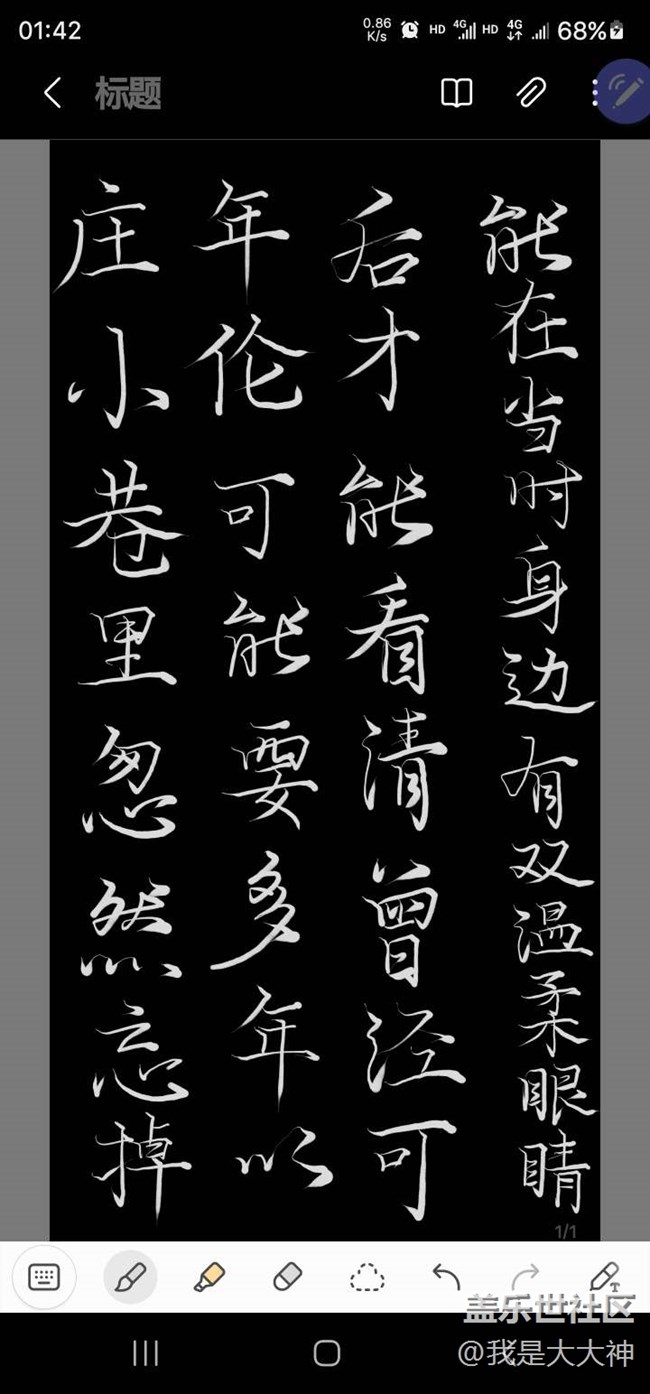 01:42
0.86 K/s HD 4G HD 4G 68%
标题
庄小巷里忽然忘掉
年伦可能要多年以
后才能看清曾泾可
能在当时身边有双温柔眼睛
1/1
盖乐世社区
@我是大大神